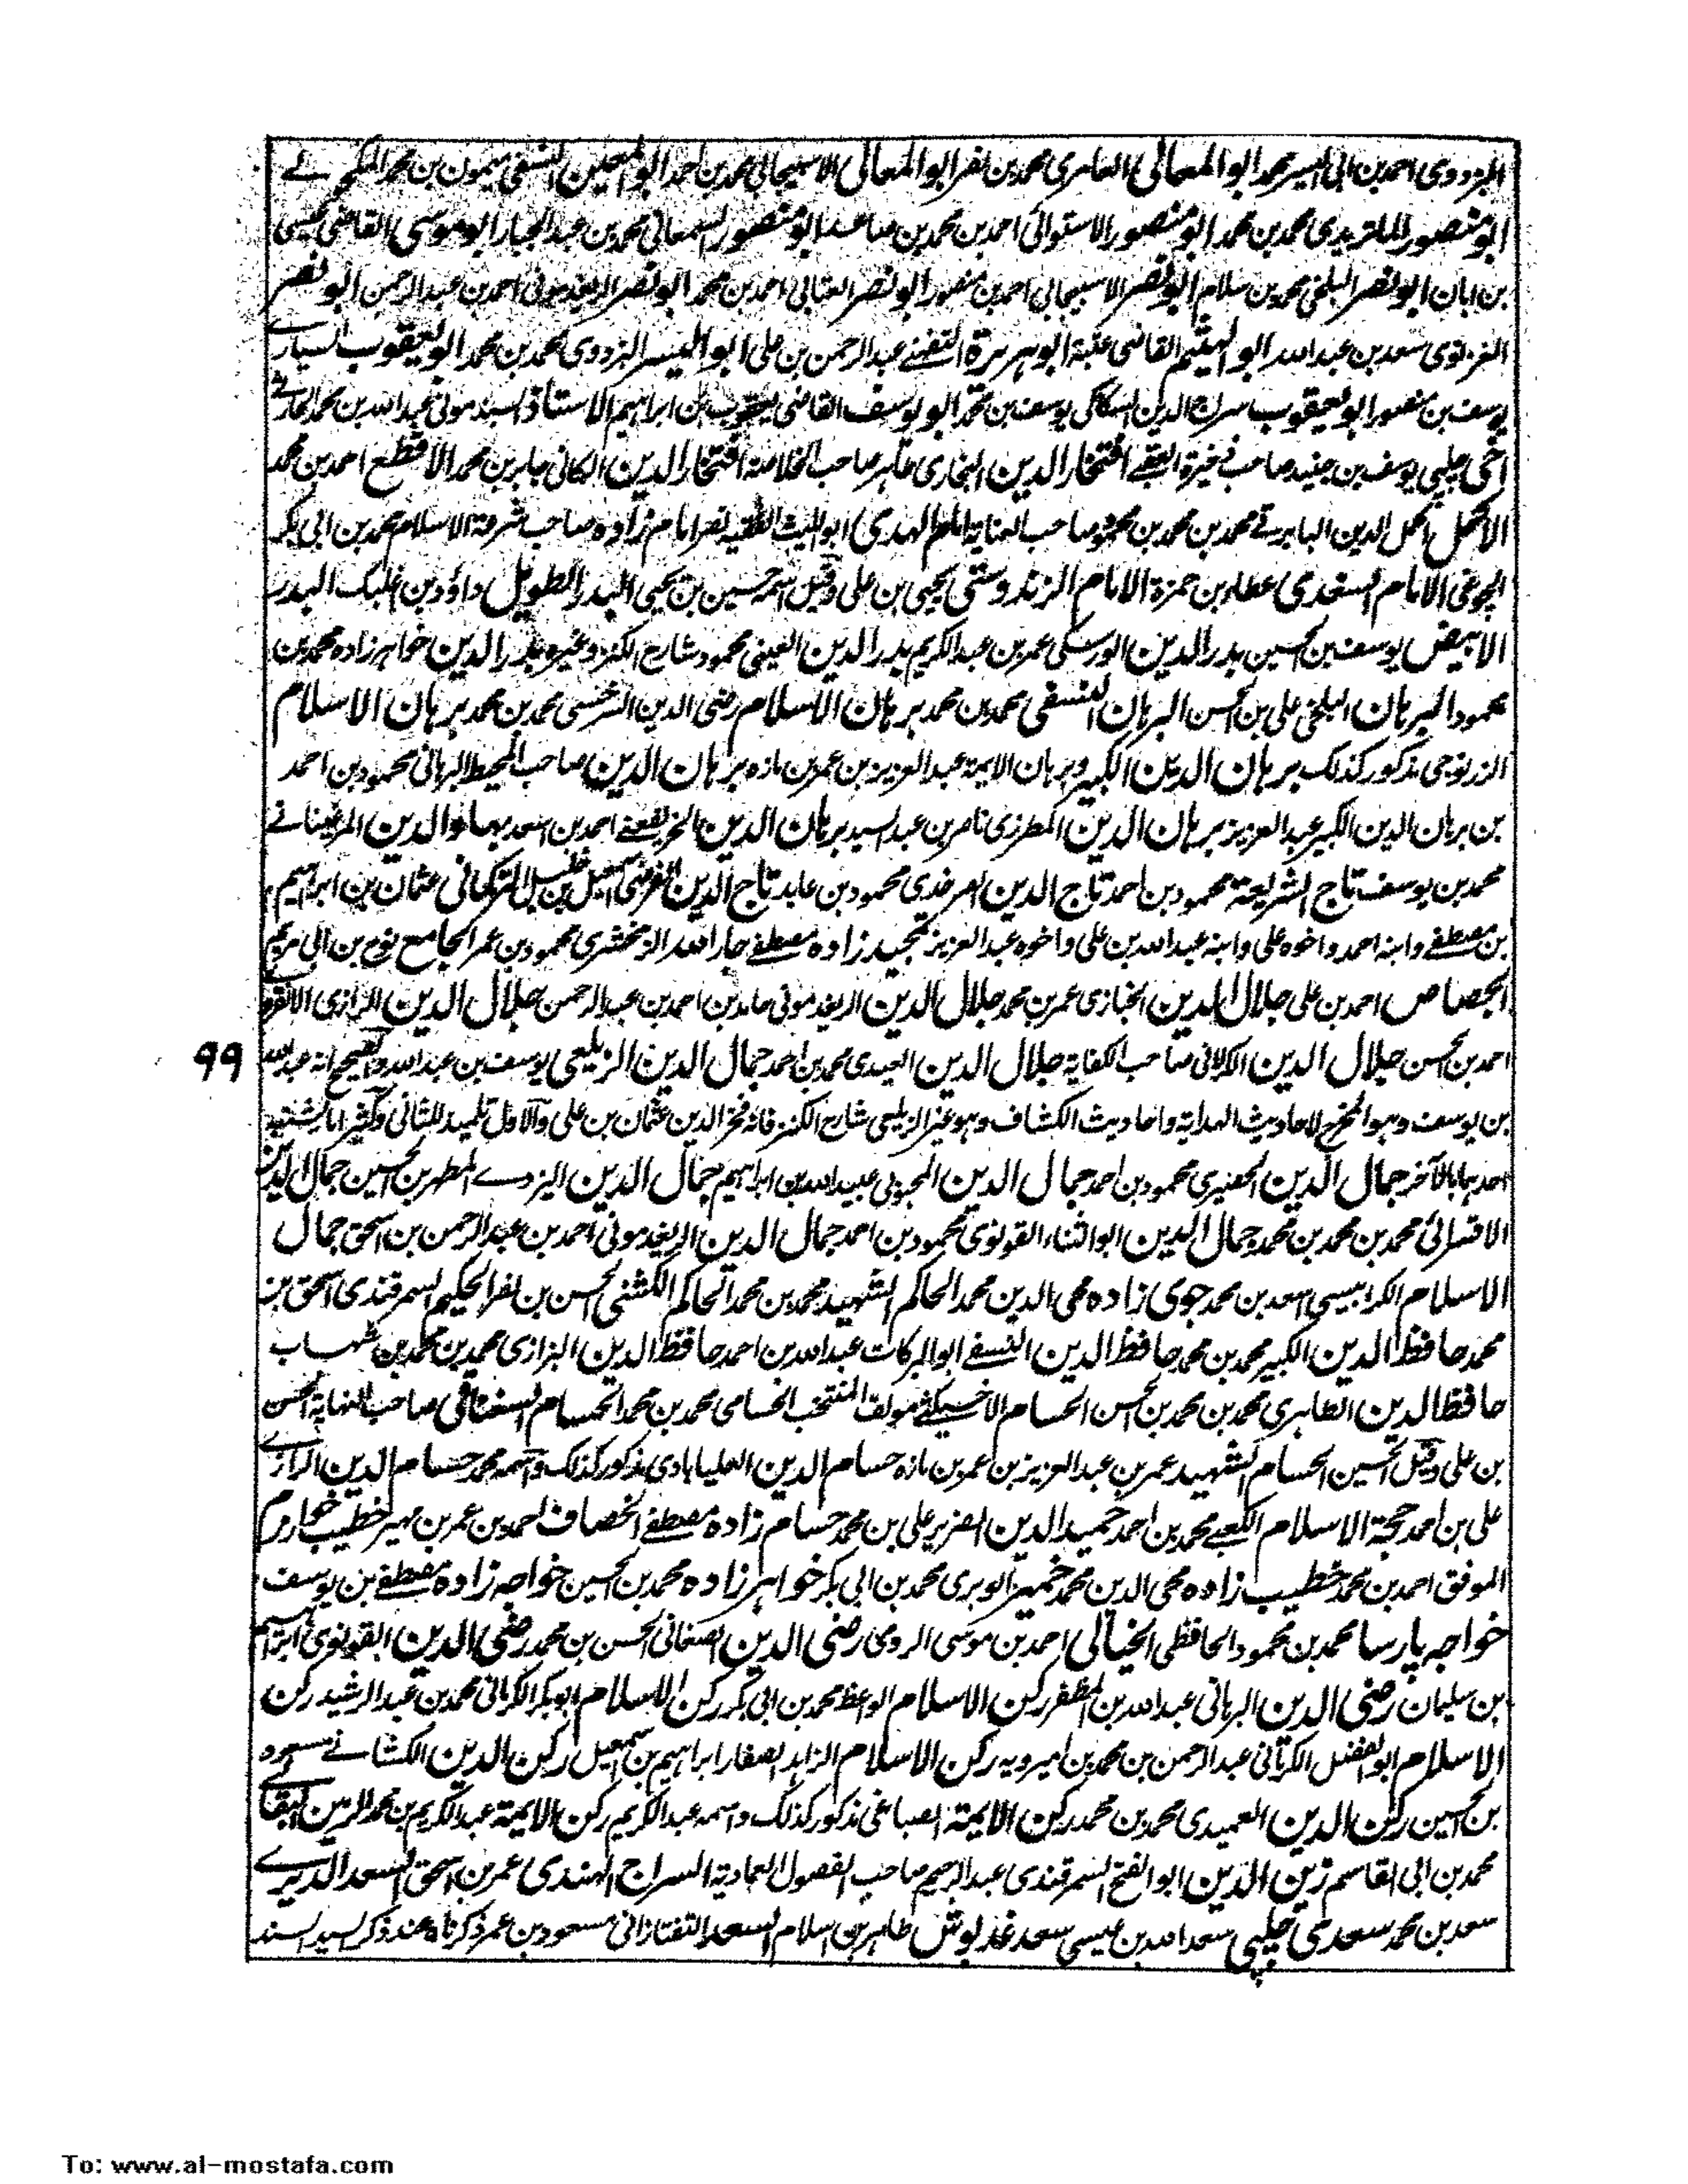 البزدوى احمد بن ابى اليسر محمد ابو المعالى العامرى محمد بن نصر ابو المعالى الاسبيجابى محمد بن احمد ابو المعين النسفى ميمون بن محمد المكحولى
ابو منصور الماتريدى محمد بن محمد ابو منصور الاستوائى احمد بن محمد بن صاعد ابو منصور السمعانى محمد بن عبد الجبار ابو موسى القاضى عيسى
بن ابان ابو نصر البلخى محمد بن سلام ابو نصر الاسبيجابى احمد بن منصور ابو نصر العتابى احمد بن محمد ابو نصر الريغدمونى احمد بن عبد الرحمن ابو نصر
الغزنوى سعد بن عبد الله ابو الهيثم القاضى عتبة ابو هريرة الثقفے عبد الرحمن بن على ابو اليسر البزدوى محمد بن محمد ابو يعقوب السيارے
يوسف بن منصور ابو يعقوب سراج الدين السكاكى يوسف بن محمد ابو يوسف القاضى يعقوب بن ابراهيم الاستاذ السبذمونى عبد الله بن محمد الحارثے
اخى چلپى يوسف بن جنيد صاحب ذخيرة العقبے افتخار الدين البخارى طاهر صاحب الخلاصة افتخار الدين الكاثى جابر بن محمد الاقطع احمد بن محمد
الاكمل اكمل الدين البابرتے محمد بن محمد بن محمود صاحب العناية امام الهدى ابو الليث الفقيه نصر امام زاده صاحب شرعة الاسلام محمد بن ابى بكر
الجوغى الامام السغدى عطاء بن حمزة الامام الزندوستى يحيى بن على وقيل اسمه حسين بن يحيى البدر الطويل داؤد بن اغلبك البدر
الابيض يوسف بن الحسين بدر الدين الورسكى عمر بن عبد الكريم بدر الدين العينى محمود شارح الكنز وغيره بدر الدين خواهر زاده محمد بن
محمود البرهان البلخى على بن الحسن البرهان النسفى محمد بن محمد برهان الاسلام رضى الدين السرخسى محمد بن محمد برهان الاسلام
الزرنوجى مذكور كذلك برهان الدين الكبير وبرهان الايمة عبد العزيز بن عمر بن مازه برهان الدين صاحب المحيط البرهانى محمود بن احمد
بن برهان الدين الكبير عبد العزيز برهان الدين المطرزى ناصر بن عبد السيد برهان الدين الخريفعنے احمد بن اسعد بهاء الدين المرغينانے
محمد بن يوسف تاج الشريعة محمود بن احمد تاج الدين الصرخدى محمود بن عابد تاج الدين الفرضى اسمعيل بن خليل التركمانى عثمان بن ابراهيم
بن مصطفے وابنه احمد واخوه على وابنه عبد الله بن على واخوه عبد العزيز تمجيد زاده مصطفے جار الله الزمخشرى محمود بن عمر الجامع نوح بن ابى مريم
الجصاص احمد بن على جلال الدين الخبازى عمر بن محمد جلال الدين الريغدمونى حامد بن احمد بن عبد الرحمن جلال الدين الرازى الانقروے
احمد بن الحسن جلال الدين الكرلانى صاحب الكفاية جلال الدين العيدى محمد بن احمد جمال الدين الزيلعى يوسف بن عبد الله والصحيح انه عبد الله
٩٩
بن يوسف وهو المخرج لاحاديث الهداية واحاديث الكشاف وهو غير الزيلعى شارح الكنز فانه فخر الدين عثمان بن على والاول تلميذ للثانى وكثيرا ما يشتبه
احدهما بالآخر جمال الدين الحصيرى محمود بن احمد جمال الدين المحبوبى عبيد الله بن ابراهيم جمال الدين اليزدے المطهر بن الحسين جمال الدين
الاقسرائى محمد بن محمد بن محمد جمال الدين ابو الثناء القونوى محمود بن احمد جمال الدين الريغدمونى احمد بن عبد الرحمن بن اسحق جمال
الاسلام الكرابيسى اسعد بن محمد جوى زاده محى الدين محمد الحاكم الشهيد محمد بن محمد الحاكم الكشنى الحسن بن نصر الحكيم السمرقندى اسحق بن
محمد حافظ الدين الكبير محمد بن محمد حافظ الدين النسفے ابو البركات عبد الله بن احمد حافظ الدين البزازى محمد بن محمد بن شهاب
حافظ الدين الطاهرى محمد بن محمد بن الحسن الحسام الاخسيكثے مولف المنتخب الحسامى محمد بن محمد الحسام السغناقى صاحب النهاية الحسن
بن على وقيل الحسين الحسام الشهيد عمر بن عبد العزيز بن عمر بن مازه حسام الدين العليابادى مذكور كذلك واسمه محمد حسام الدين الرازے
على بن احمد حجة الاسلام الكعبے محمد بن احمد حميد الدين الضرير على بن محمد حسام زاده مصطفے الخصاف احمد بن عمر بن مهير خطيب خوارزم
الموفق احمد بن محمد خطيب زاده محى الدين محمد خمير الوبرى محمد بن ابى بكر خواهر زاده محمد بن الحسين خواجه زاده مصطفے بن يوسف
خواجه پارسا محمد بن محمود الحافظى الخيالى احمد بن موسى الرومى رضى الدين الصغانى الحسن بن محمد رضى الدين القونوى ابراهيم
بن سليمان رضى الدين البرهانى عبد الله بن المظفر ركن الاسلام الواعظ محمد بن ابى بكر ركن الاسلام ابو بكر الكرمانى محمد بن عبد الرشيد ركن
الاسلام ابو الفضل الكرمانى عبد الرحمن بن محمد بن اميرويه ركن الاسلام الزاهد الصفار ابراهيم بن اسمعيل ركن الدين الكشانے مسعود
بن الحسين ركن الدين العميدى محمد بن محمد ركن الايمة الصباغى مذكور كذلك واسمه عبد الكريم ركن الايمة عبد الكريم بن محمد الزين البقالے
محمد بن ابى القاسم زين الدين ابو الفتح السمرقندى عبد الرحيم صاحب الفصول العمادية السراج الهندى عمر بن اسحق السعد الديرے
سعد بن محمد سعدى چلپى سعد الله بن عيسى سعد غديوش طاهر بن اسلام السعد التفتازانى مسعود بن عمر ذكرناه عند ذكر السيد السند
To: www.al-mostafa.com